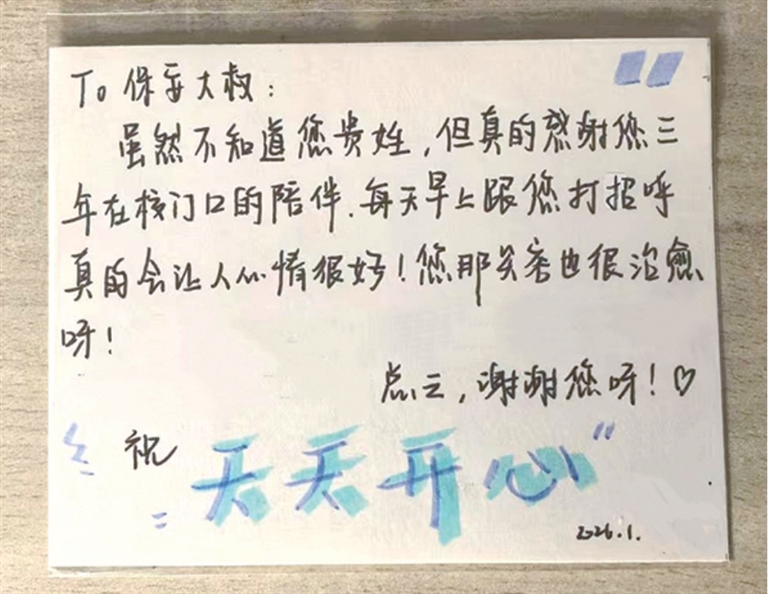 To 保安大叔：
虽然不知道您贵姓，但真的感谢您三
年在校门口的陪伴.每天早上跟您打招呼
真的会让人心情很好！您那笑容也很治愈
呀！
总之，谢谢您呀！♡
祝 天天开心
2026.1.